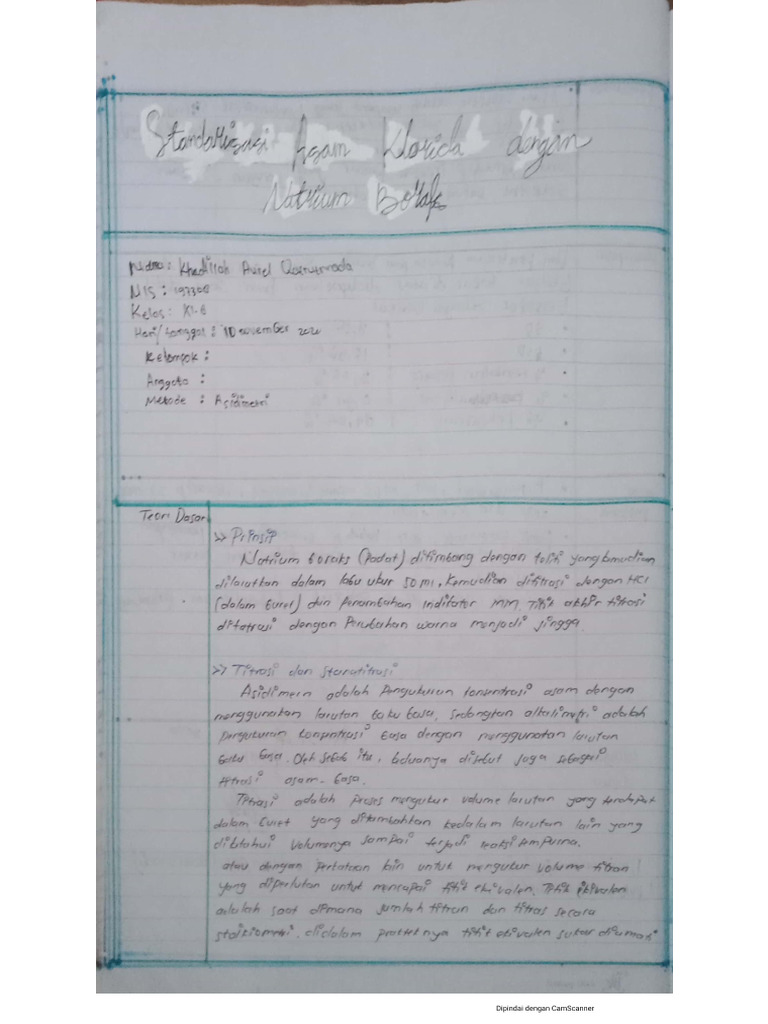 Standarisasi Asam Klorida dengan
Natrium Boraks
Nama :
NIS :
Kelas : XI-6
Hari/tanggal : 10 november 2020
Kelompok :
Anggota :
Metode : Asidimetri
Teori Dasar
>> Prinsip
Natrium boraks (Padat) ditimbang dengan teliti yang kemudian
dilarutkan dalam labu ukur 50 ml, kemudian dititrasi dengan HCl
(dalam buret) dan Penambahan indikator MM. Titik akhir titrasi
ditandai dengan Perubahan warna menjadi jingga.
>> Titrasi dan
Asidimetri adalah Pengukuran konsentrasi asam dengan
menggunakan larutan baku basa, sedangkan alkalimetri adalah
Pengukuran konsentrasi basa dengan menggunakan larutan
baku basa. Oleh sebab itu, keduanya disebut juga sebagai
titrasi asam-basa.
Titrasi adalah Proses mengukur volume larutan yang terdapat
dalam buret yang ditambahkan kedalam larutan lain yang
diketahui volumenya sampai terjadi reaksi sempurna.
atau dengan Perkataan lain untuk mengukur volume titran
yang diperlukan untuk mencapai titik ekivalen. Titik ekivalen
adalah saat dimana jumlah titran dan titrat secara
stoikiometri. didalam prakteknya titik ekivalen sukar diamati
Dipindai dengan CamScanner